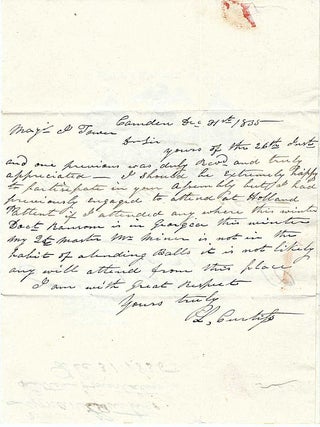 Camden Dec 31st 1835
Majr J Tower
Dr Sir
yours of the 26th Inst
and one previous was duly Recd and truly
appreciated — I should be extremely happy
to participate in your assembly but I had
previously engaged to attend at Holland
Patent if I attended any where this winter
Doct Ransom is in Georgia this winter
my 2d master Mr Miner is not in the
habit of attending Balls it is not likely
any will attend from this place
I am with Great Respect
Yours truly
Curtiss
Dec 31, 1835